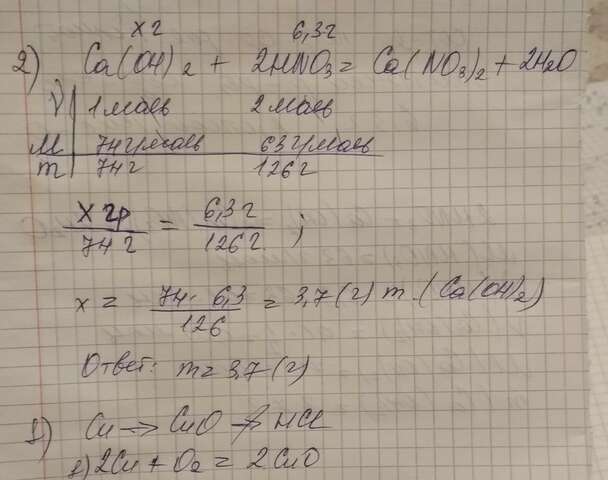 x г 6,3г
2) Ca(OH)2 + 2HNO3 = Ca(NO3)2 + 2H2O
ν 1 моль 2 моль
M 74 г/моль 63 г/моль
m 74 г 126 г
x гр / 74 г = 6,3 г / 126 г ;
x = 74 · 6,3 / 126 = 3,7 (г) m (Ca(OH)2)
Ответ: m = 3,7 (г)
Cu → CuO → HCl
1) 2Cu + O2 = 2CuO